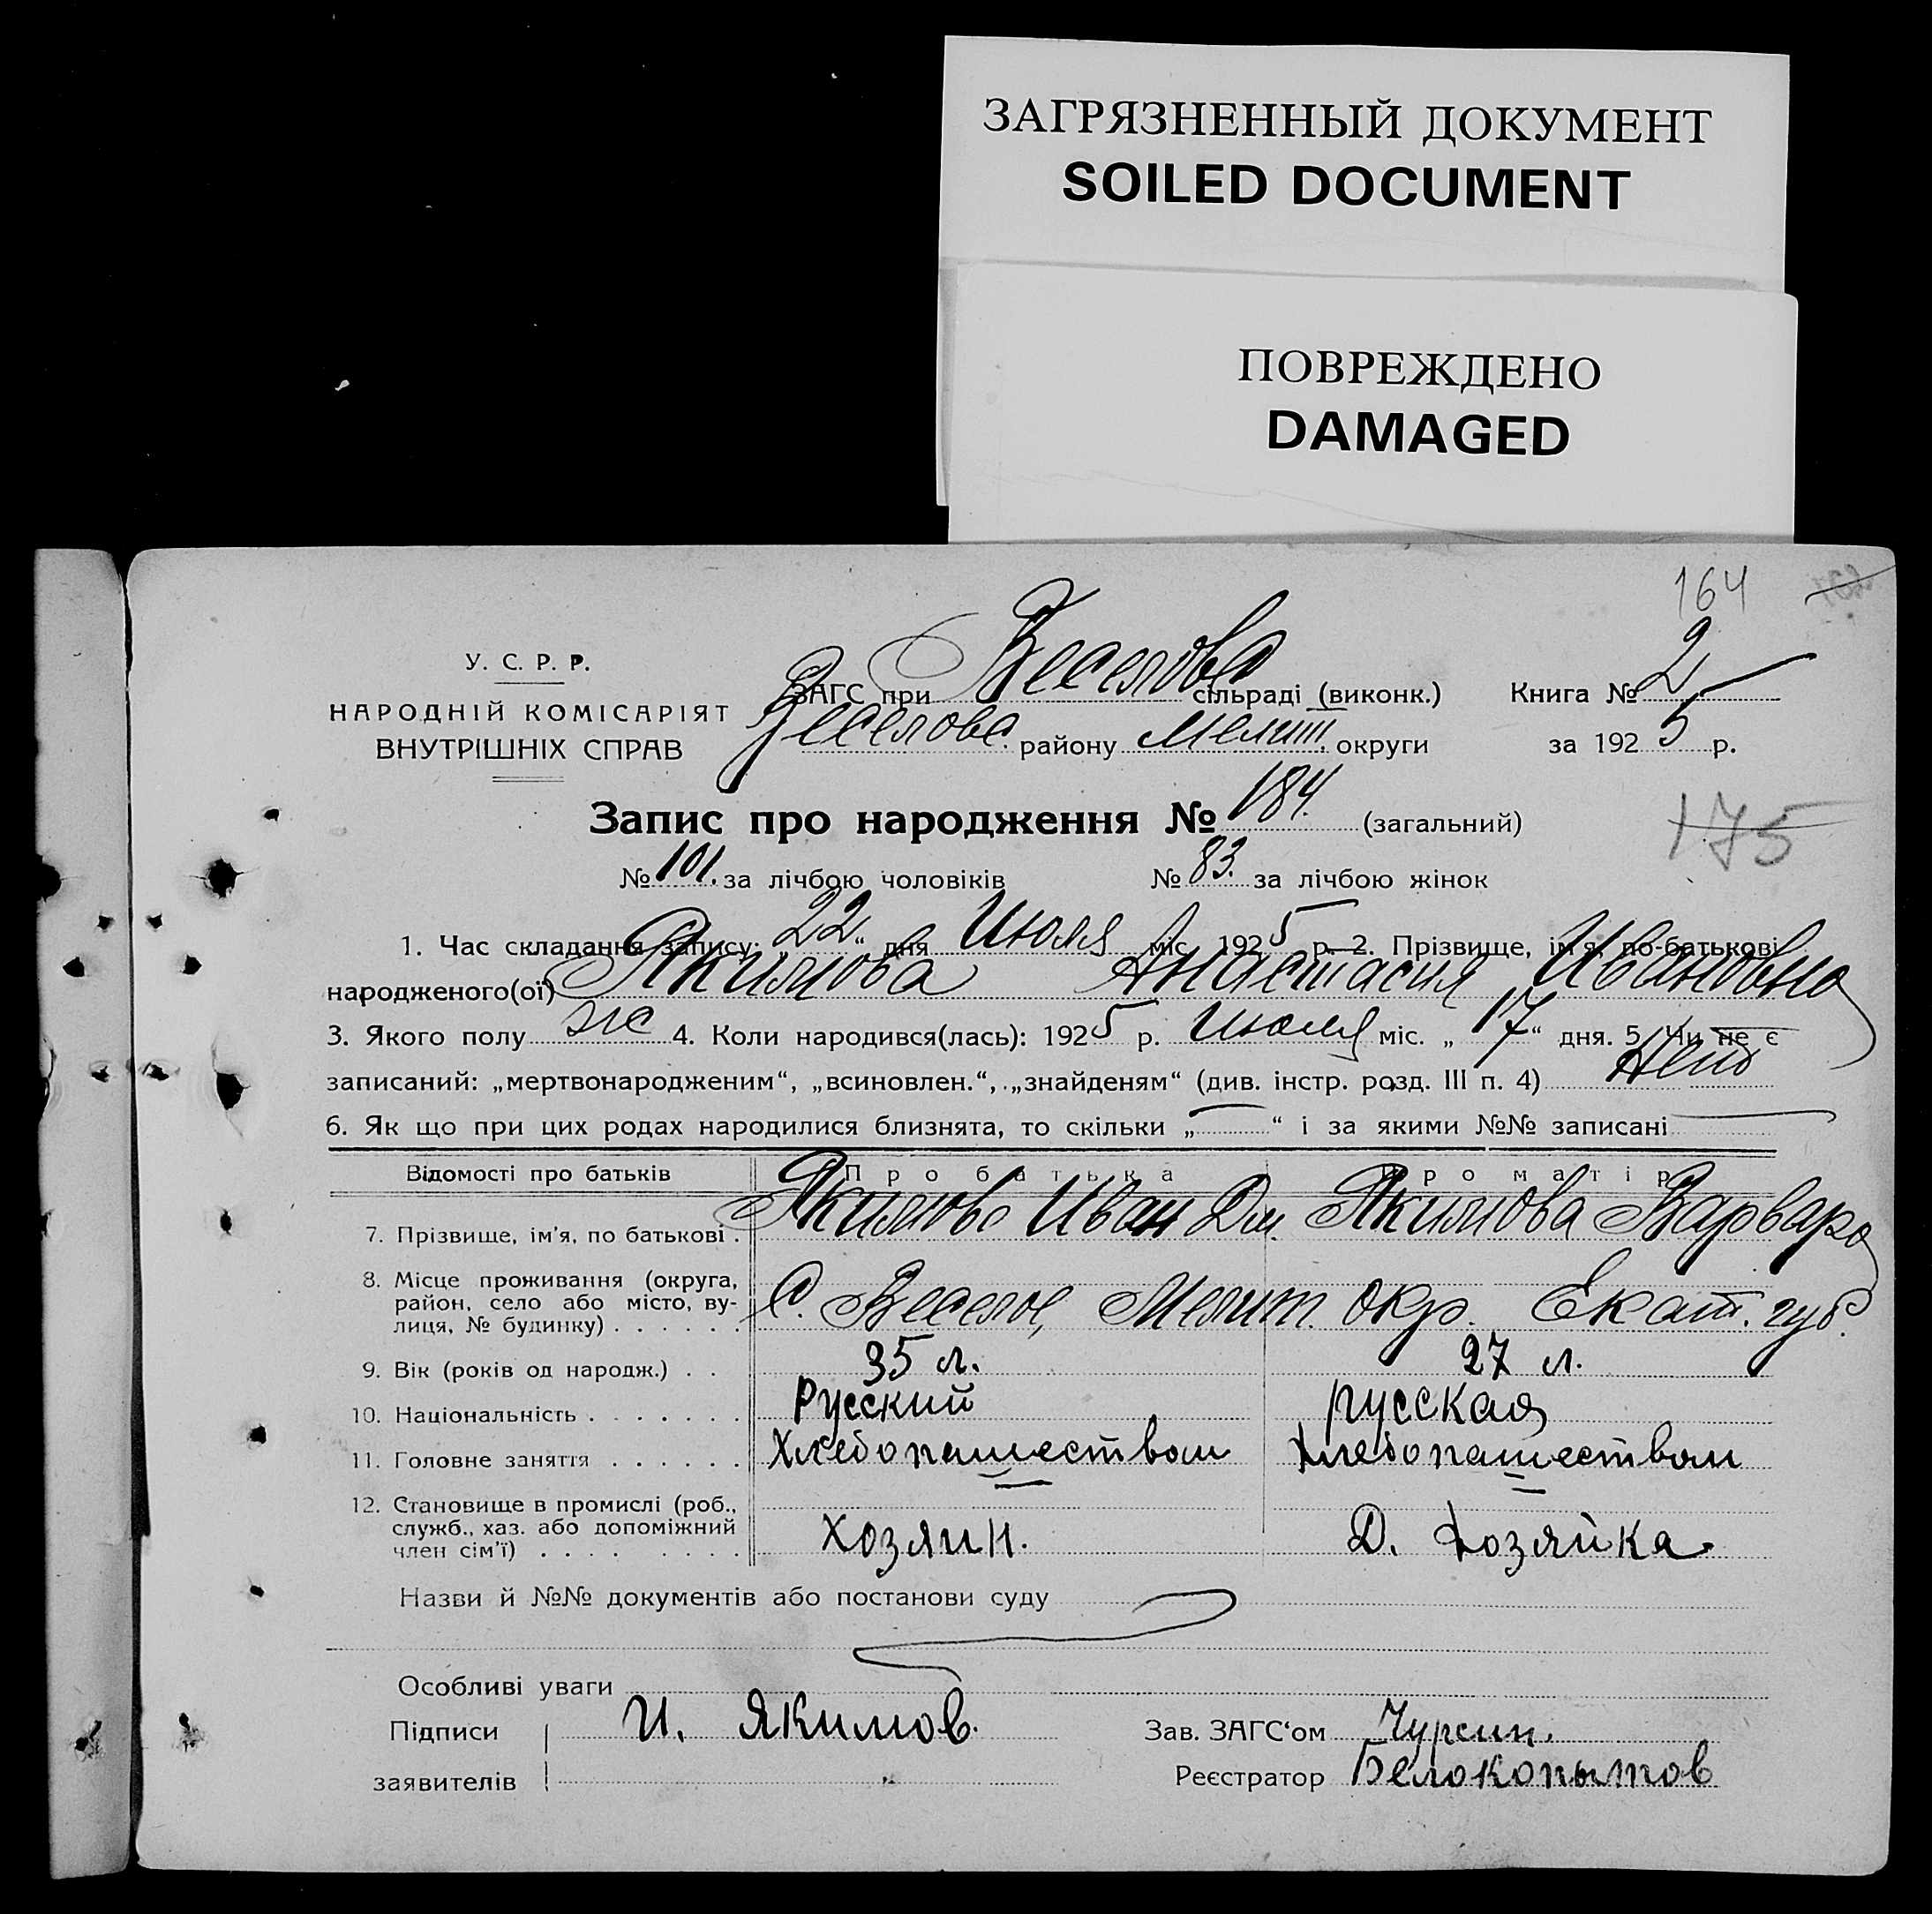 ЗАГРЯЗНЕННЫЙ ДОКУМЕНТ
SOILED DOCUMENT
ПОВРЕЖДЕНО
DAMAGED
164
У. С. Р. Р.
НАРОДНІЙ КОМІСАРІЯТ
ВНУТРІШНІХ СПРАВ
ЗАГС при Веселовс сільраді (виконк.) Книга № 2
Веселовс. району Мелит. округи за 1925 р.
Запис про народження № 184. (загальний)
175
№ 101. за лічбою чоловіків № 83. за лічбою жінок
1. Час складання запису: 22 “ дня Июля міс. 1925 р. 2. Прізвище, ім'я, по-батькові
народженого(ої) Якимова Анастасия Ивановна
3. Якого полу ж 4. Коли народився(лась): 1925 р. Июля міс. „ 17 “ дня. 5. Чи не є
записаний: „мертвонародженим“, „всиновлен.“, „знайденям“ (див. інстр. розд. III п. 4)
6. Як що при цих родах народилися близнята, то скільки „ “ і за якими №№ записані
Відомості про батьків Про батька Про матір
7. Прізвище, ім'я, по батькові . Якимов Иван Дм. Якимова Варвара
8. Місце проживання (округа, район, село або місто, вулиця, № будинку) . . . . . . С. Веселое, Мелит. окр. Екат. губ.
9. Вік (років од народж.) . . 35 л. 27 л.
10. Національність . . . . . . . Русский русская
11. Головне заняття . . . . . . Хлебопашеством Хлебопашеством
12. Становище в промислі (роб., служб., хаз. або допоміжний член сім'ї) . . . . . . . . Хозяин. Д. Хозяйка
Назви й №№ документів або постанови суду
Особливі уваги
Підписи И. Якимов. Зав. ЗАГС‘ом Чурсин.
заявителів Реєстратор Белокопытов